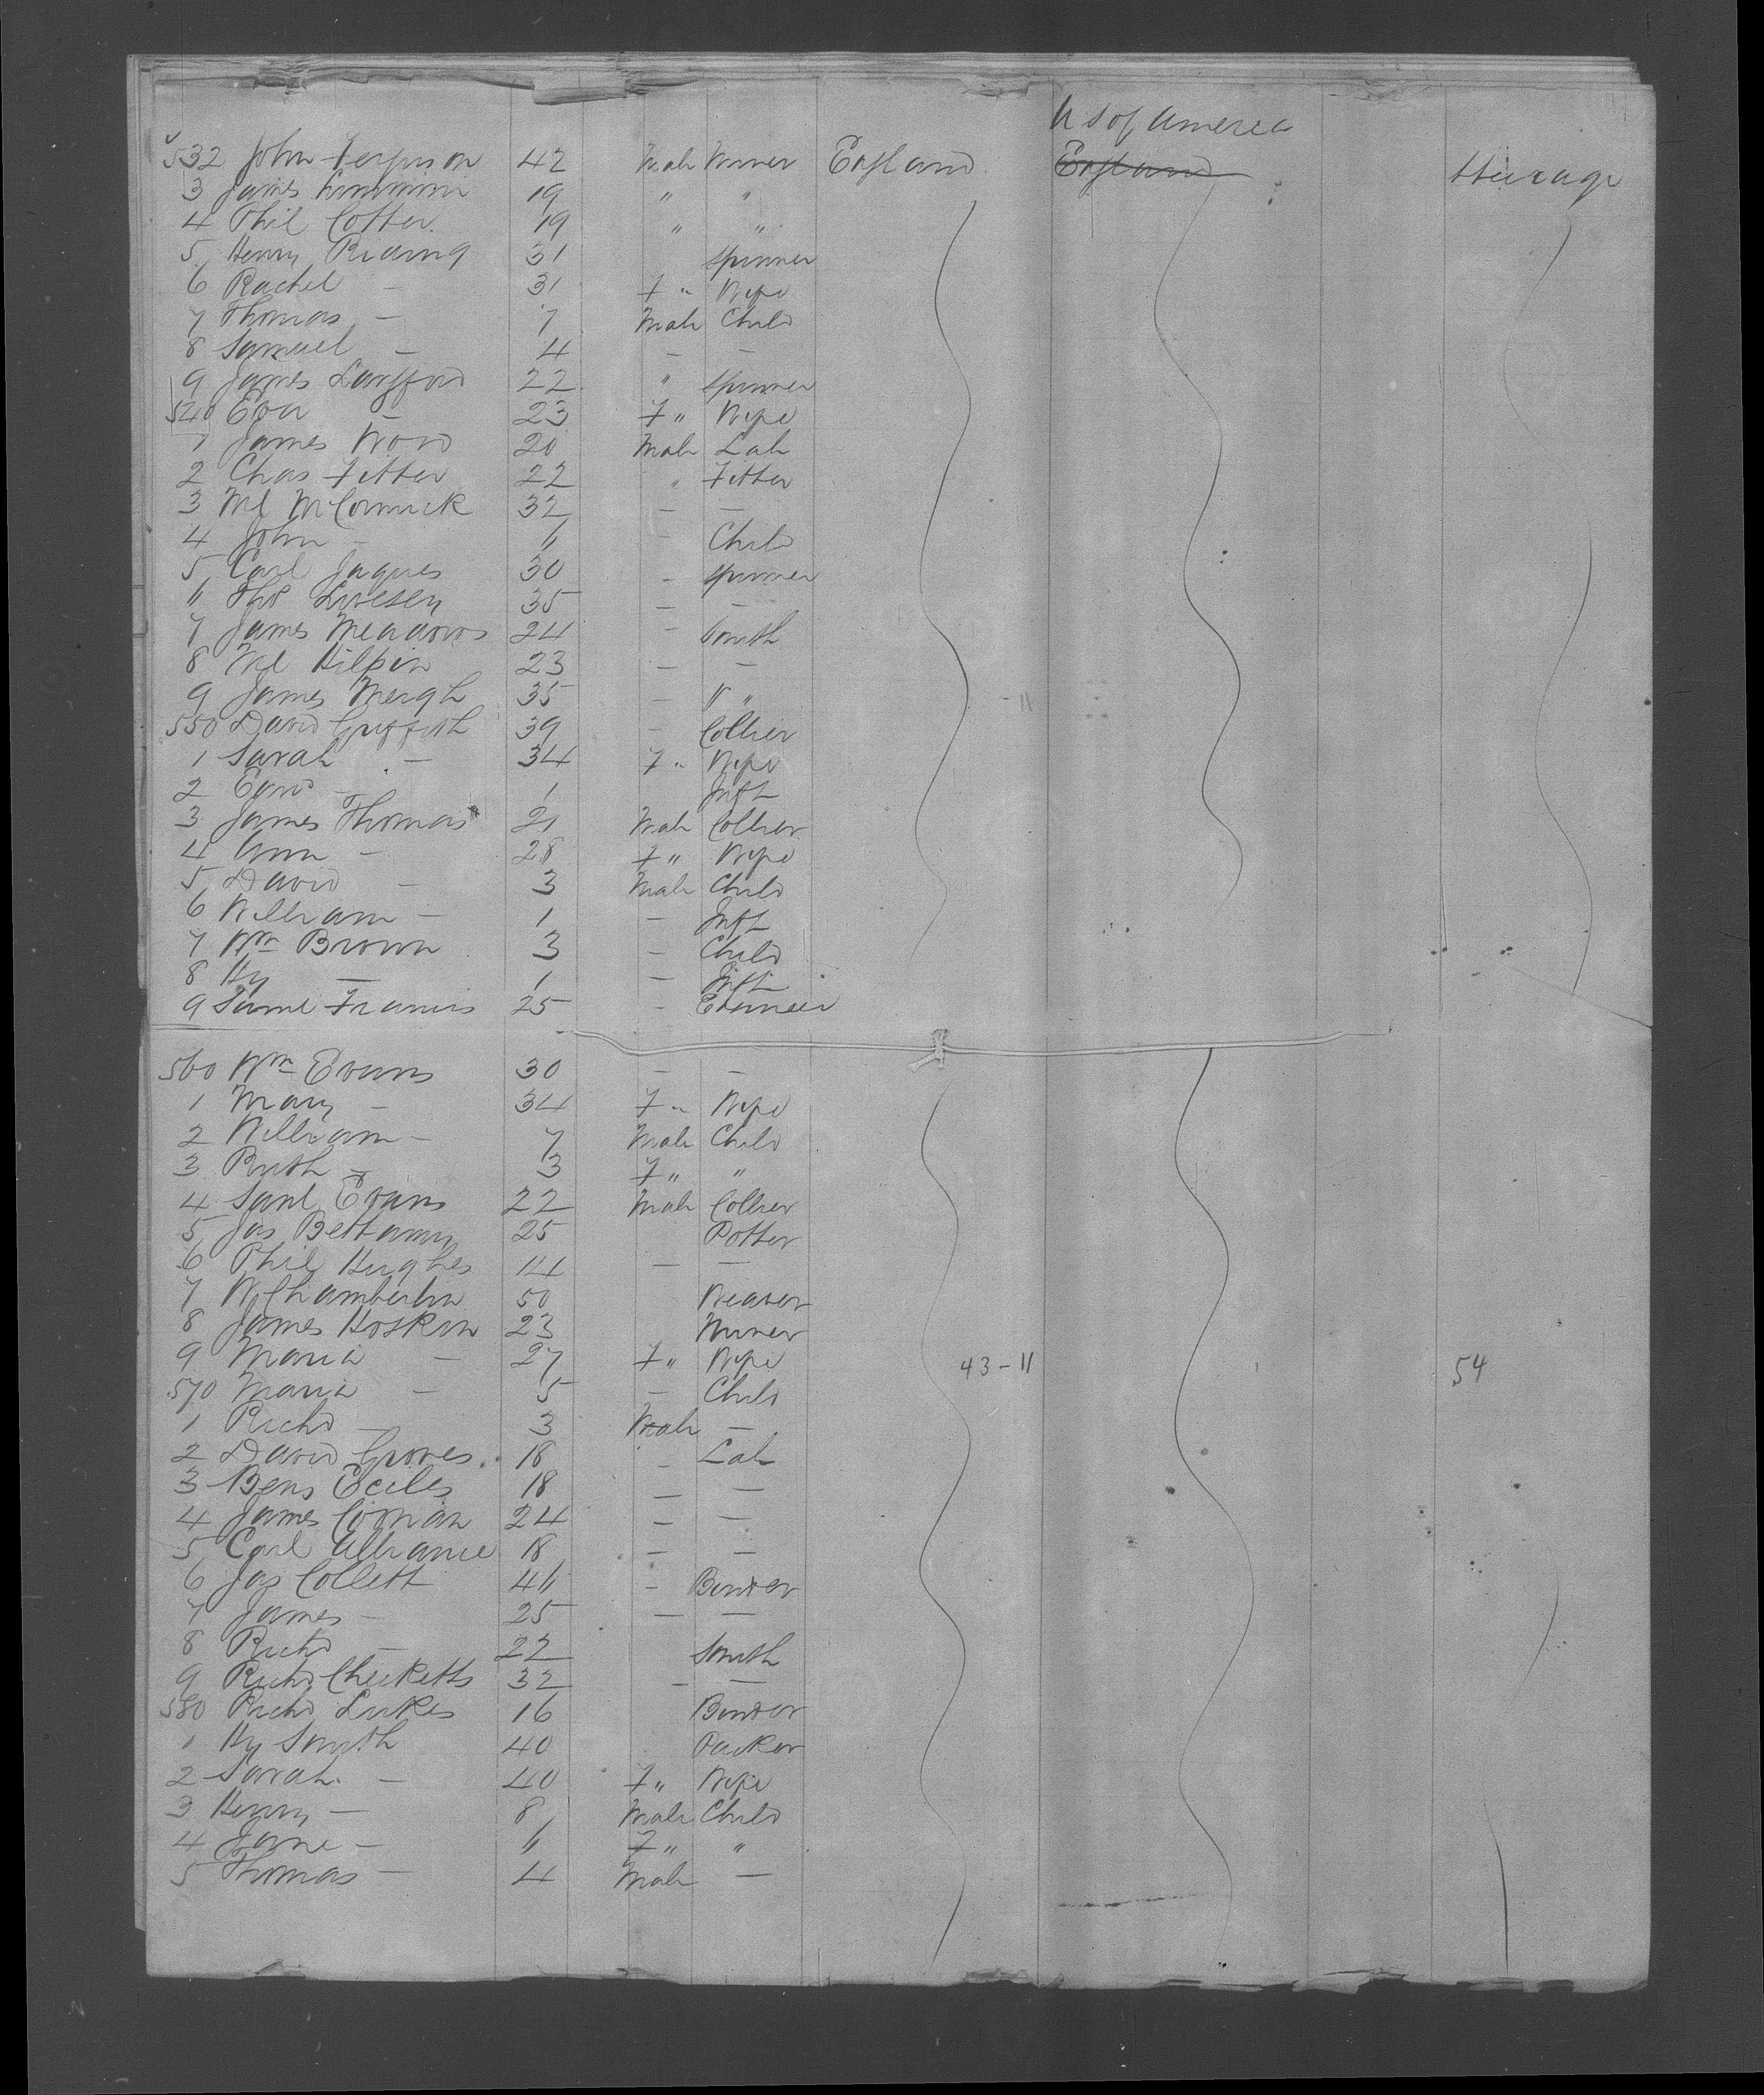 U S of America
532 John Ferguson 42 Male Miner England England Steerage
3 James 19 " "
4 Phil Cotter 19 " "
5 Henry Riding 31 Spinner
6 Rachel — 31 F " Wife
7 Thomas — 7 Male Child
8 Samuel — 4 — —
9 James Langford 22 " Spinner
540 Eva — 23 F " Wife
1 James Word 20 Male Lab
2 Chas Fitter 22 " Fitter
3 Ml McCormick 32 — —
4 John — 11 — Child
5 Carl Jaques 30 - Spinner
6 Thos 35 — —
7 James Meadows 24 - Smith
8 Ml Kilpin 23 — —
9 James Meigh 35 - " "
550 David Griffith 39 - Collier
1 Sarah — 34 F " Wife
2 Edwd — 1 Inft
3 James Thomas 21 Male Collier
4 Ann — 28 F " Wife
5 David — 3 Male Child
6 William — 1 — Inft
7 Wm Brown 3 — Child
8 Hy — 1 — Inft
9 Saml Francis 25 - Engineer
560 Wm Evans 30 — —
1 Mary — 34 F " Wife
2 William — 7 Male Child
3 Ruth — 3 F " "
4 Saml Evans 22 Male Collier
5 Jas Bettany 25 Potter
6 Phil Hughes 14 — —
7 W Chamberlin 50 Weaver
8 James Hoskin 23 Miner
9 Maria — 27 F " Wife 43-11 54
570 Maria — 5 — Child
1 Richd — 3 Male —
2 David Groves 18 - Lab
3 Benj Eccles 18 — —
4 James 24 — —
5 Carl 18 — —
6 Jas Collett 46 - Binder
7 James — 25 — —
8 Richd — 22 Smith
9 Richd Checketts 32 - —
580 Richd Lukes 16 Binder
1 Hy Smith 40 Packer
2 Sarah — 40 F " Wife
3 Henry — 8 Male Child
4 Jane — 6 F " "
5 Thomas — 4 Male —